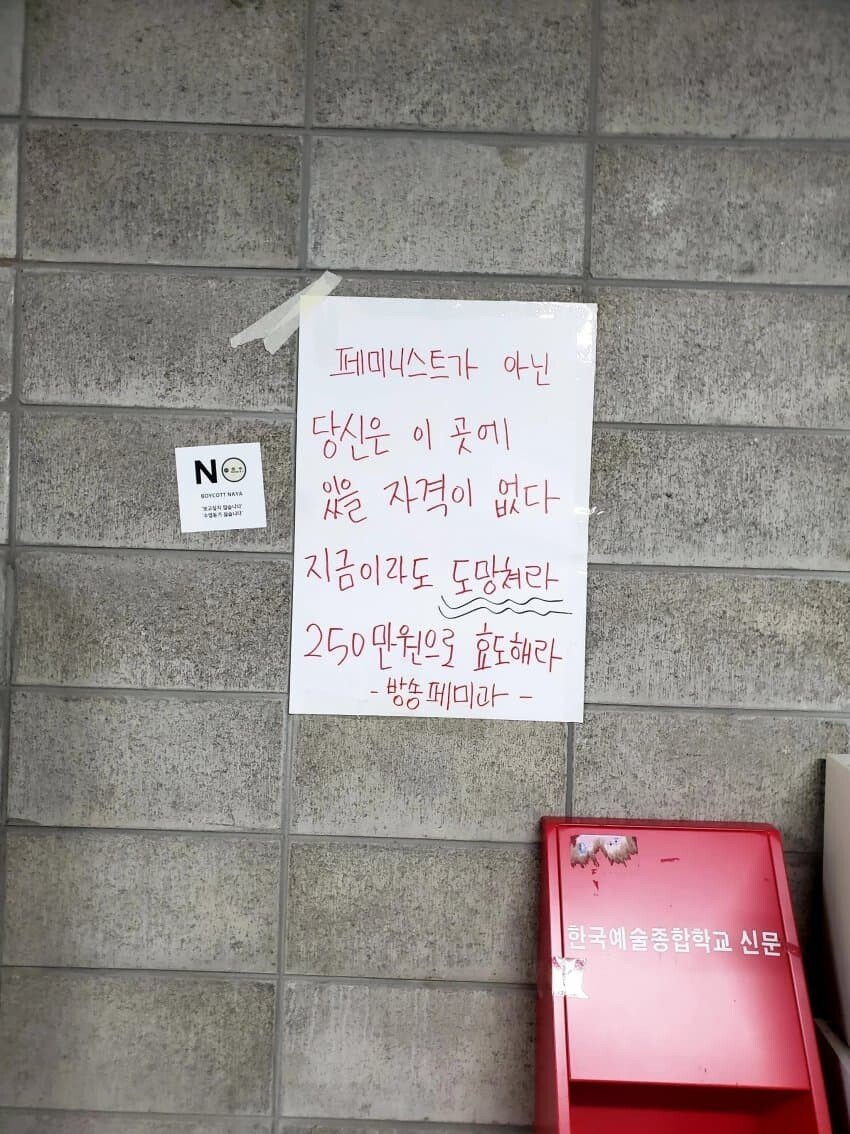 페미니스트가 아닌
당신은 이 곳에
있을 자격이 없다
지금이라도 도망쳐라
250만원으로 효도해라
- 방송페미과 -
NO
BOYCOTT NAYA
'보고싶지 않습니다'
'수업듣기 싫습니다'
한국예술종합학교 신문